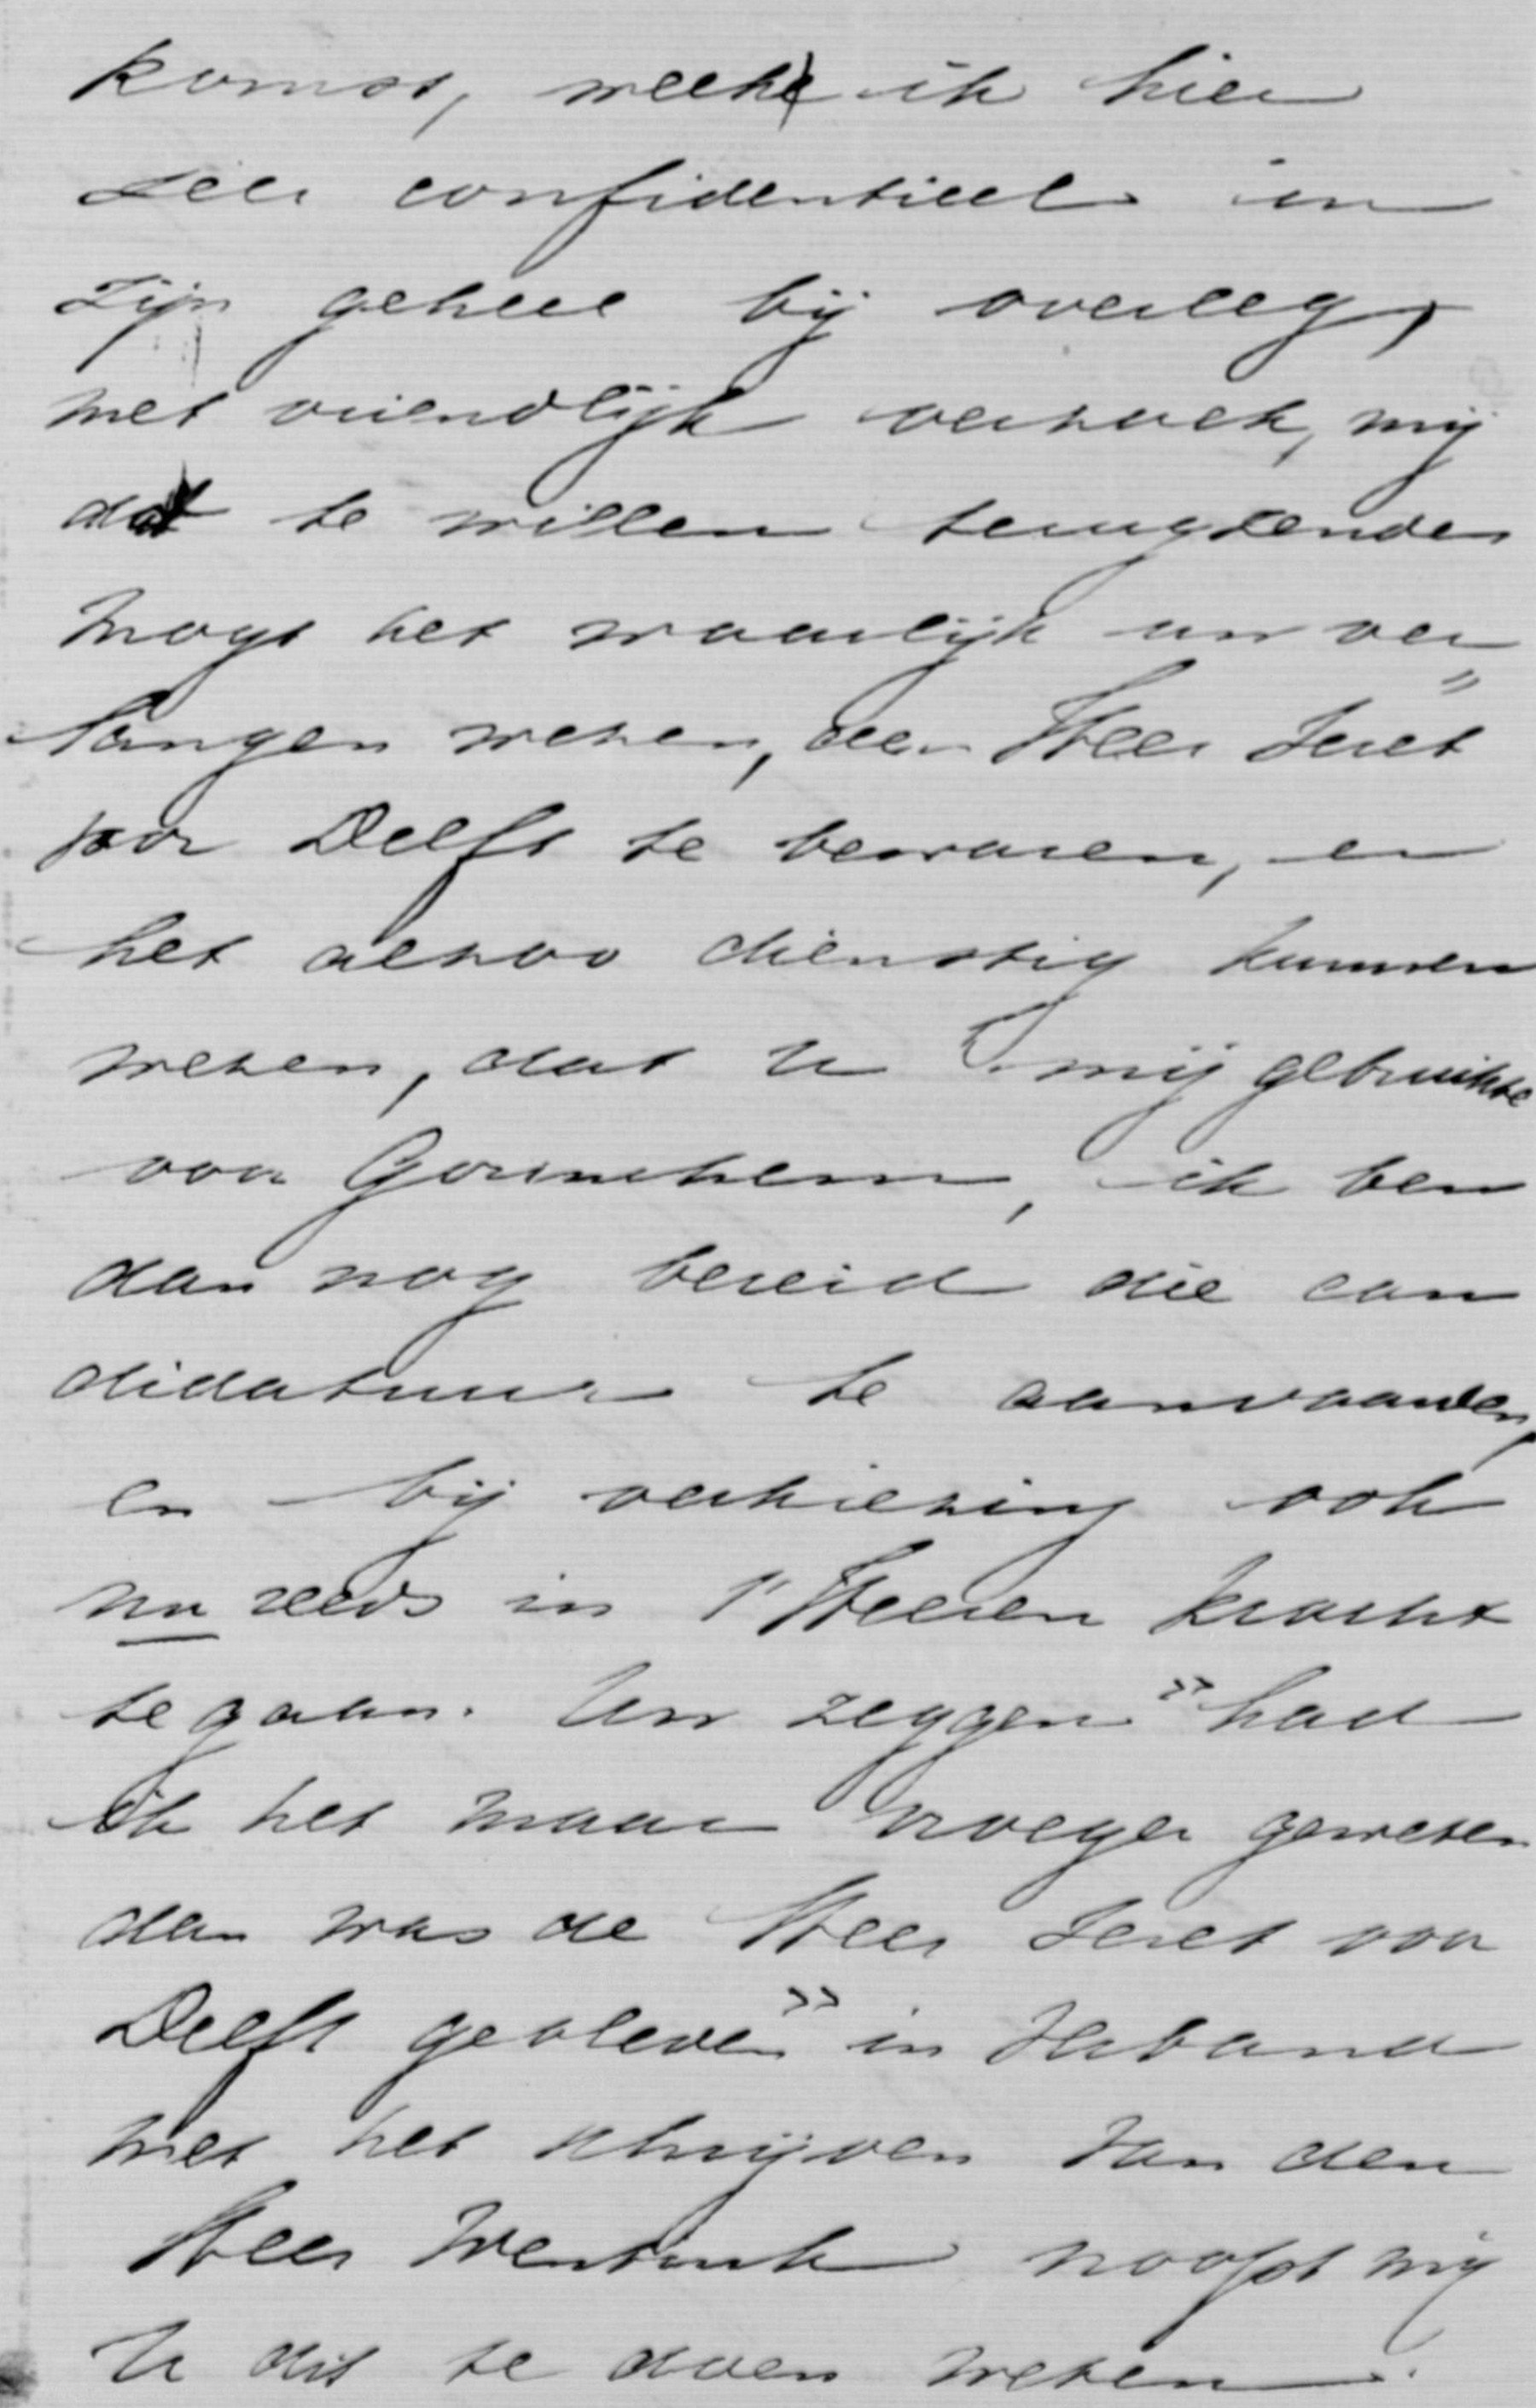 komst, welke ik hier
zeer confidentieel in
zijn geheel bij overleg,
met vriendlijk verzoek, mij
dat te willen terugzenden
Mogt het waarlijk uw ver
langen wezen, den Heer Seret
voor Delft te bewaren, en
het alzoo dienstig kunnen
wezen, dat U mij gebruikte
voor Gorinchem, ik ben
dan nog bereid die can
didatuur te aanvaarden,
en bij verkiezing ook
nu reeds in 's Heeren kracht
te gaan. Uw zeggen "had
ik het maar vroeger geweten
dan was de Heer Seret voor
Delft gebleven" in verband
met het schrijven van den
Heer Wentink noopt mij
U dit te doen weten.